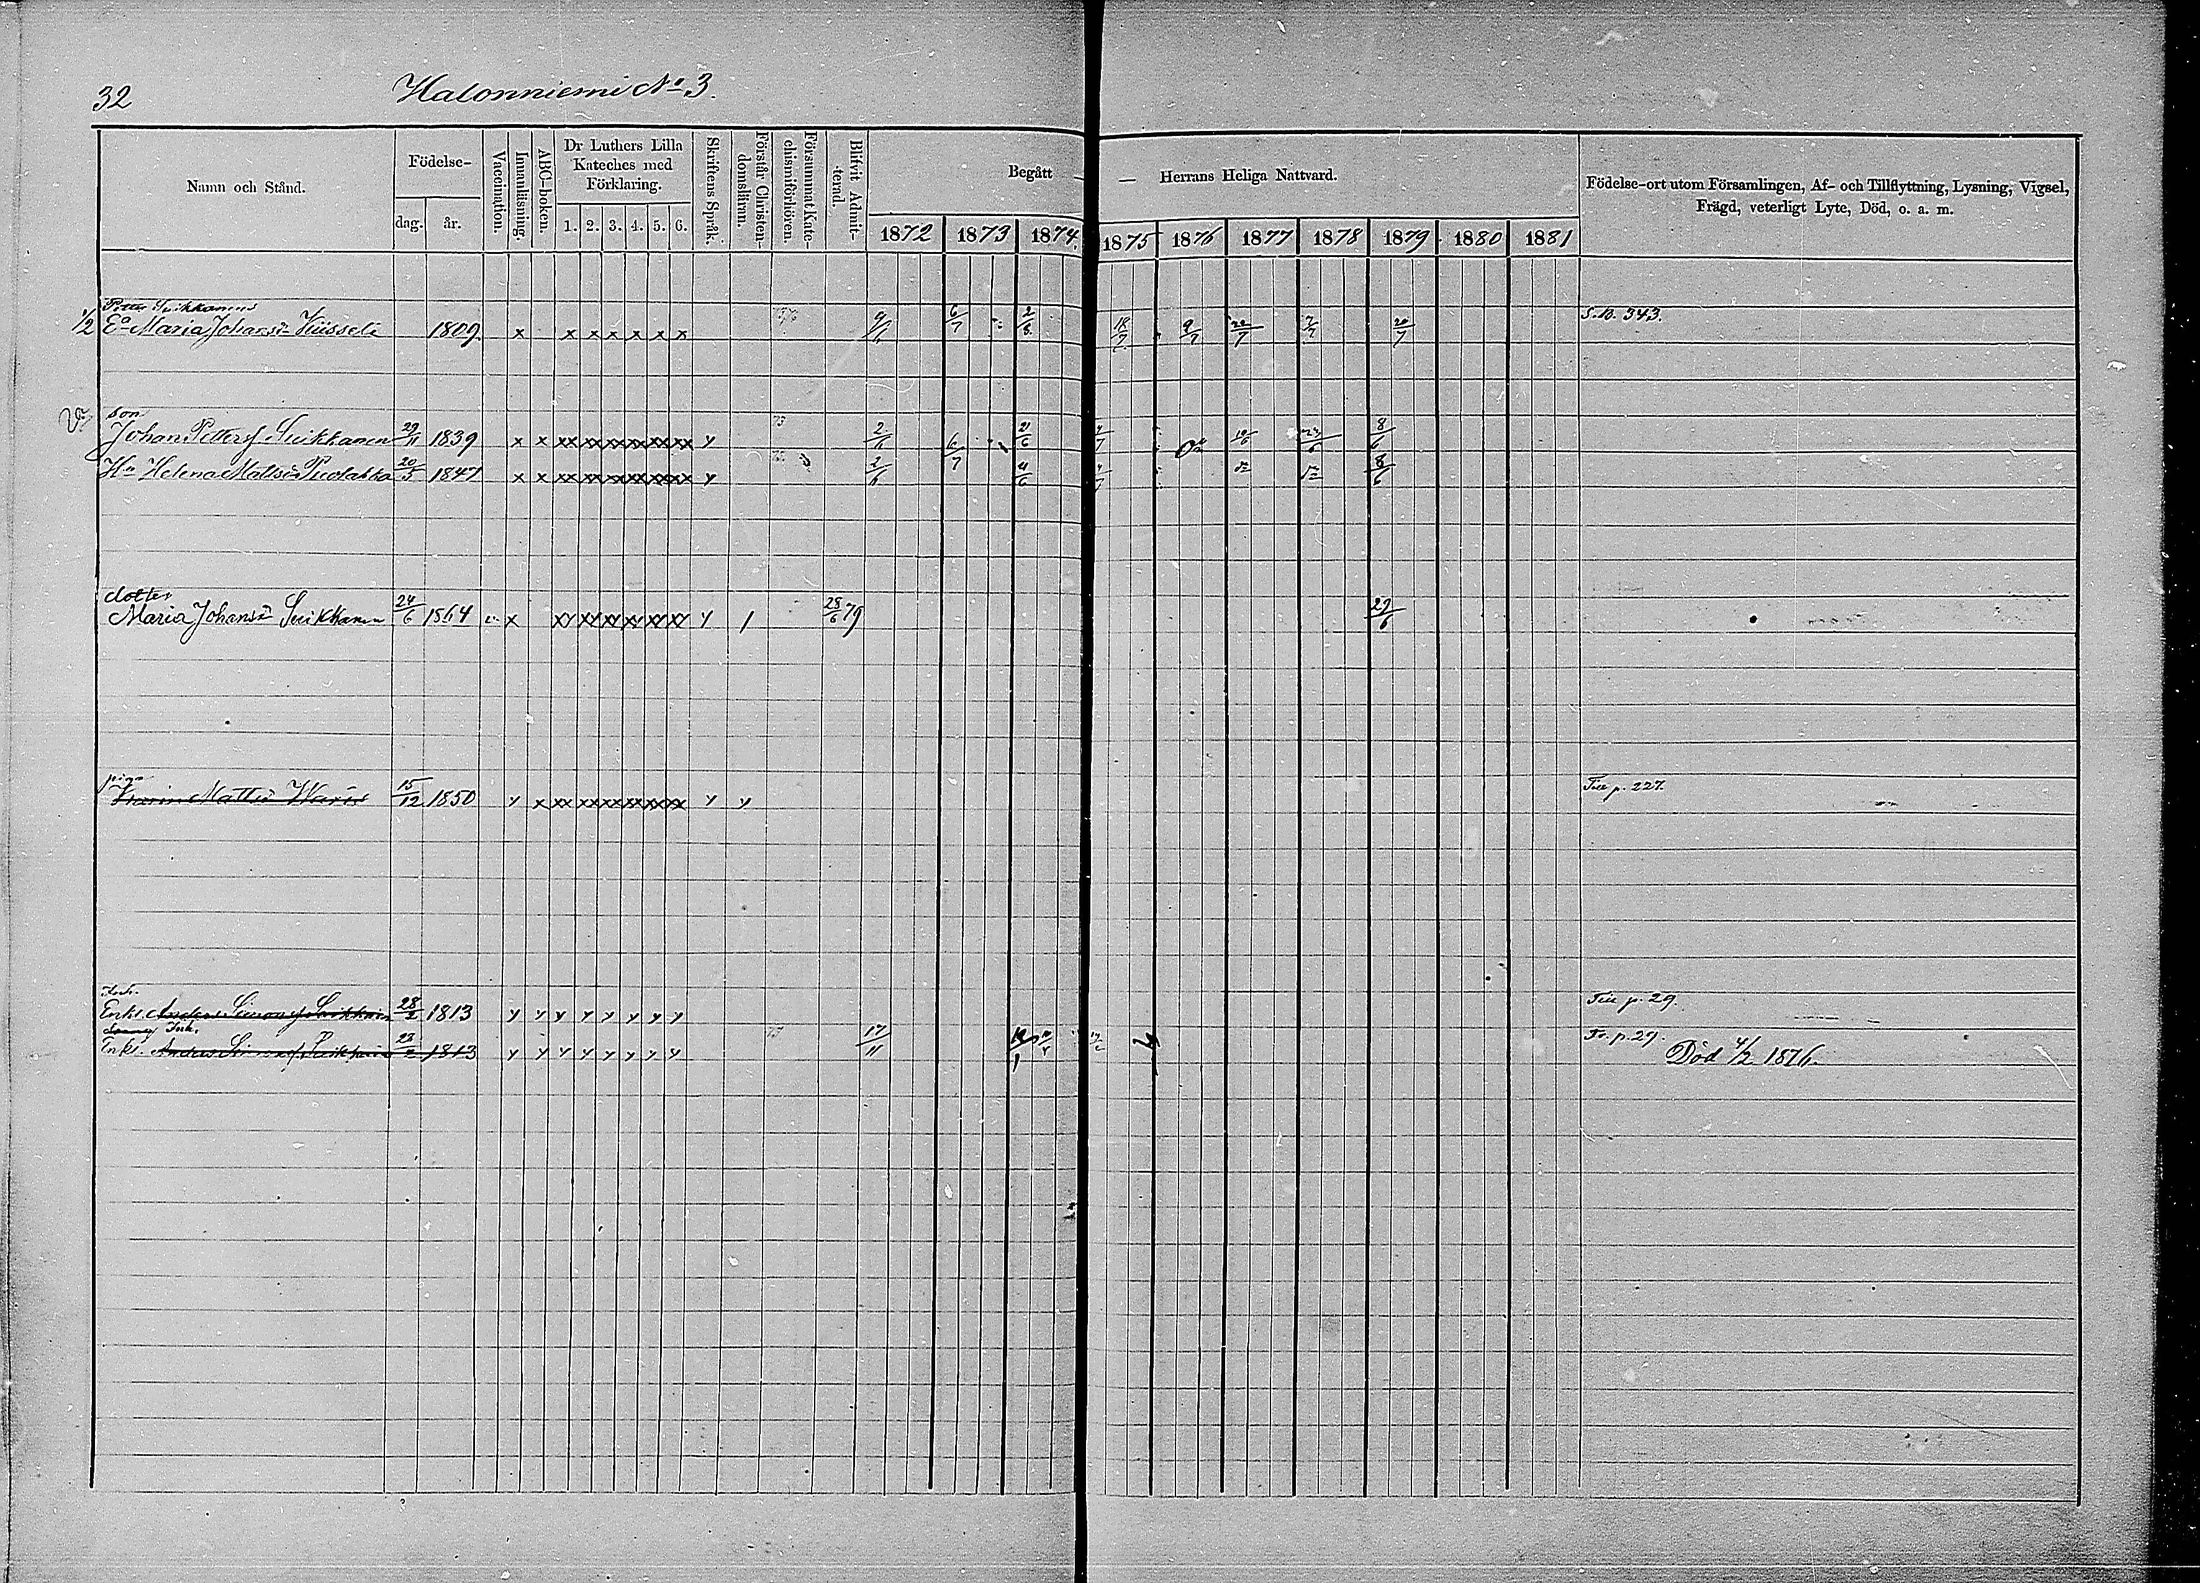 32
Halonniemi No 3.
Namn och Stånd.
Födelse-
dag.
år.
Vaccination.
Innanläsning.
ABC-boken.
Dr Luthers Lilla
Kateches med
Förklaring.
1. 2. 3. 4. 5. 6.
Skriftens Språk.
Förstår Christen-
domsläran.
Försummat Kate-
chismiförhören.
Blifvit Admit-
terad.
Begått — — Herrans Heliga Nattvard.
1872 1873 1874 1875 1876 1877 1878 1879 1880 1881
Födelse-ort utom Församlingen, Af- och Tillflyttning, Lysning, Vigsel,
Frägd, veterligt Lyte, Död, o. a. m.
1/2 Ea Maria Johansd 1809 x x x x x x x 6/7 2/8 18/7 9/7 20/7 7/7 20/7 S.B. 343.
son
Johan Petterss Suikkanen 29/11 1839 x x xx xx xx xx xx xx y 73 2/6 6/7 21/6 10/6 8/6
Hu Helena Mattsd 20/5 1847 x x xx xx xx xx xx xx y 2/6 8/6
dotter
Maria Johansd Suikkanen 24/6 1864 v. x xy xy xy xy xy xy y / 28/6 79 29/6
piga
Mattsd 15/12 1850 y x xx xx xx xx xx xx y y Till p. 227.
Enkl. Anders Simonss Suikkanen 28/2 1813 y y y y y y y y Till p. 29.
Enkl. Anders Simonss Suikkanen 28/2 1813 y y y y y y y y 17/11 Fr. p. 29.
Död 4/2 1876.